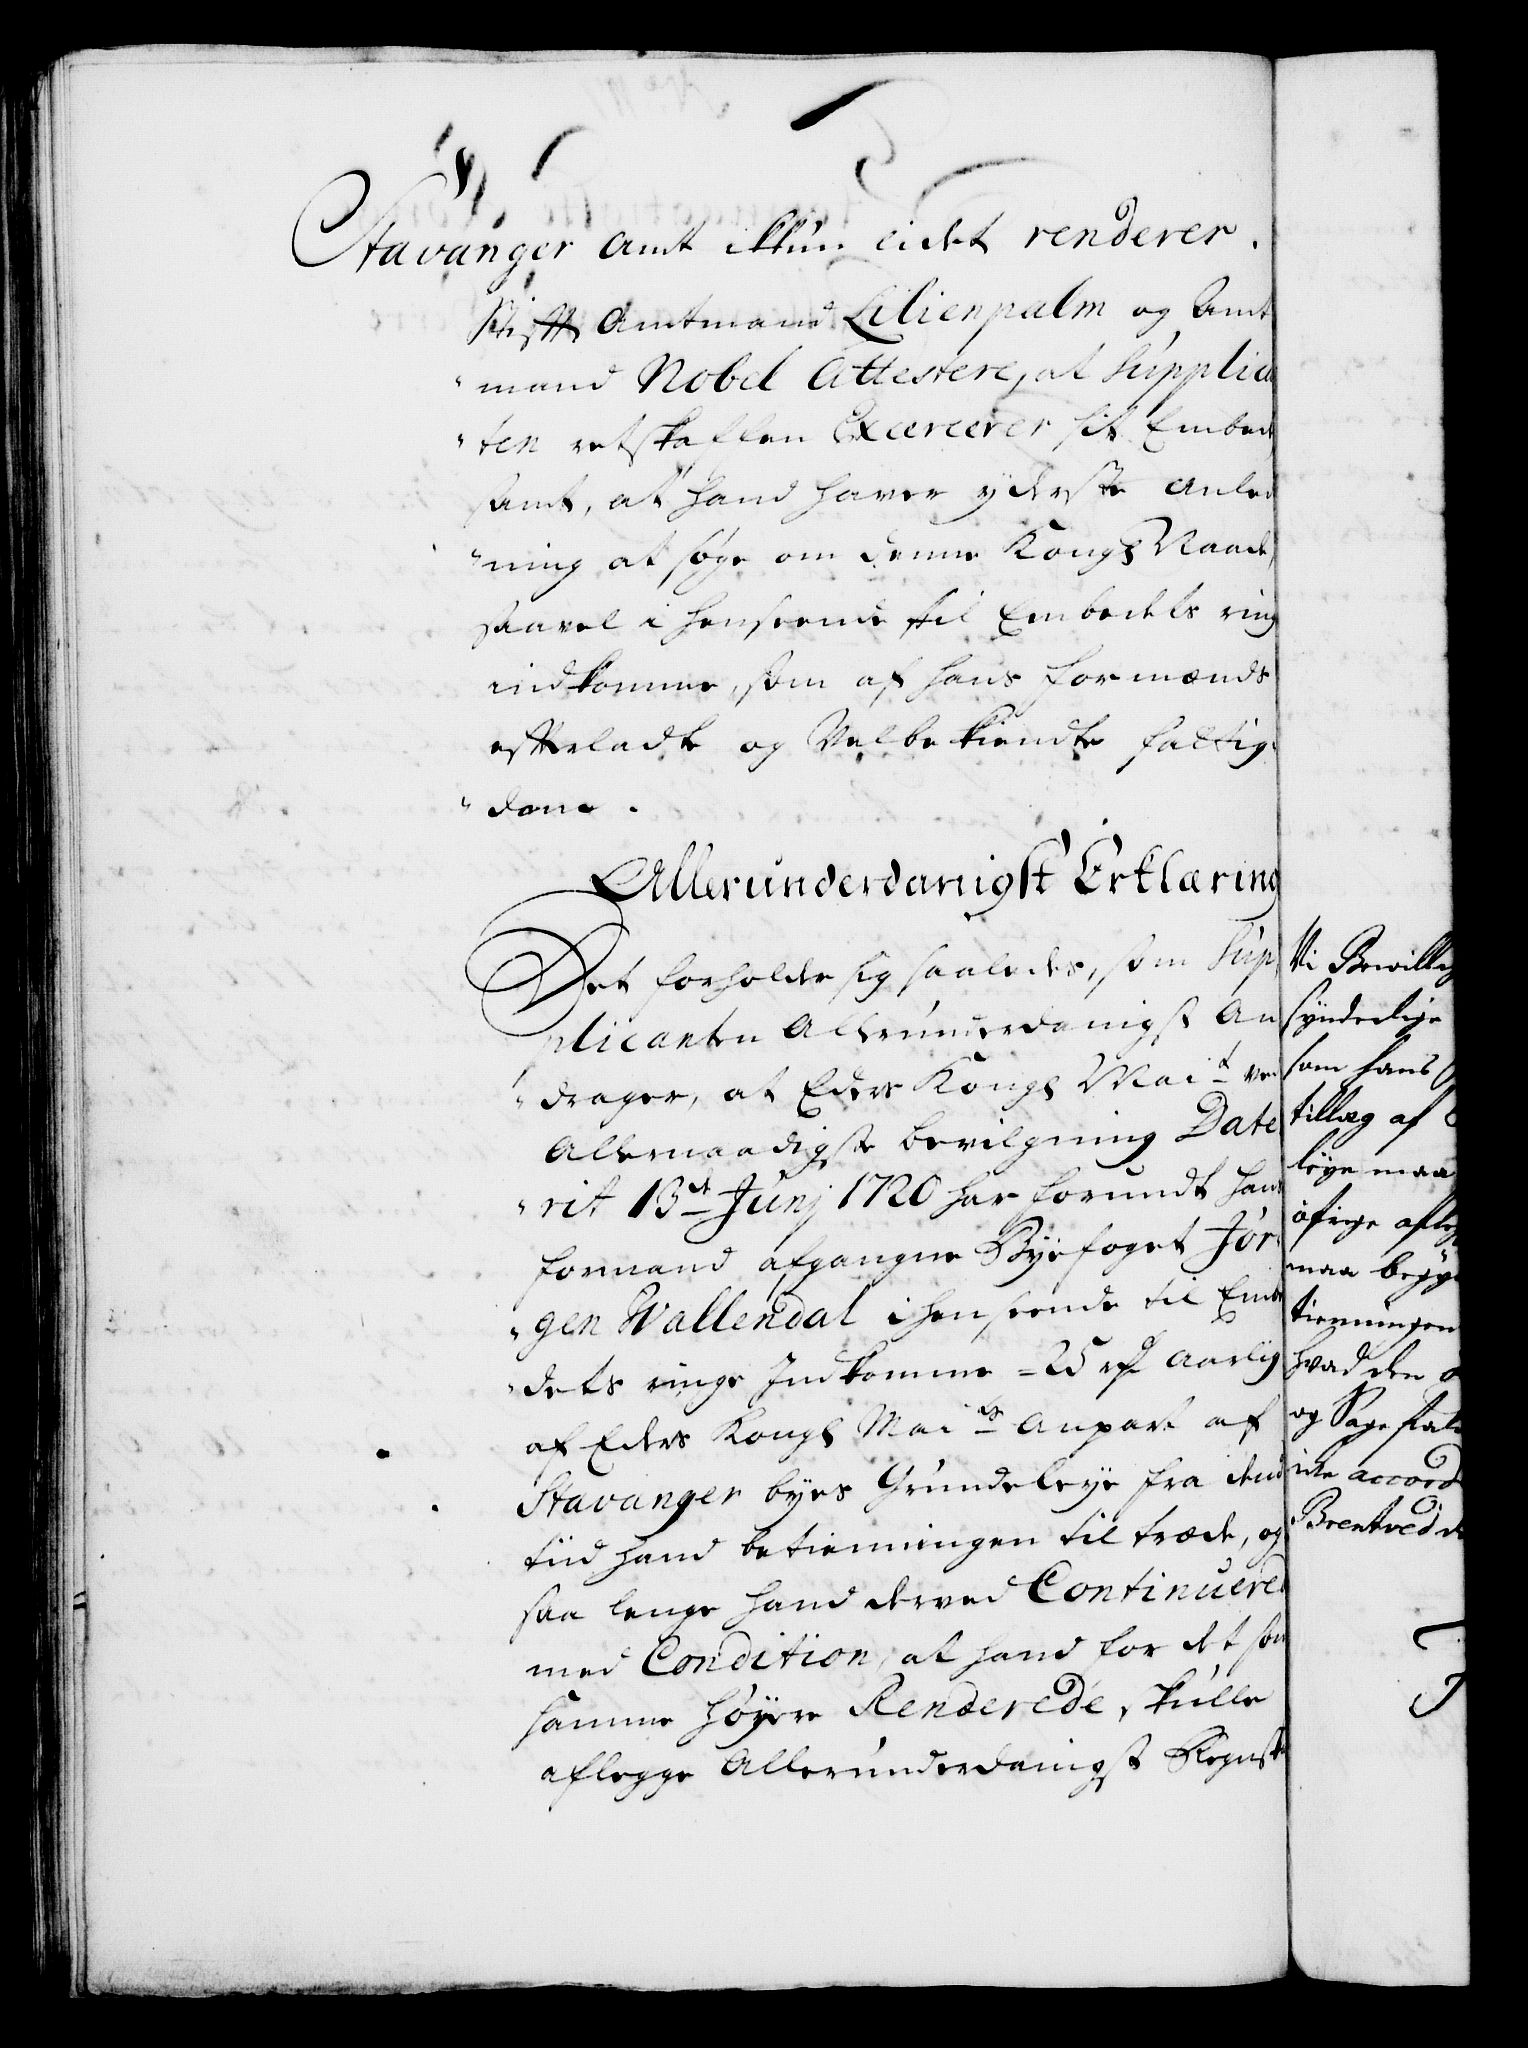 Stavanger Amt ikkun lidet renderer.
Stifft Amtmand Lilienpalm og Amt
mand Nobel Attestere, at Supplica
ten retskaffen Excercerer sit Embed
samt, at hand haver yderste anled
ning at søge om denne Kongl Naade,
saavel i henseende til Embedets ring
indkomme, som af hans formænds
efterladte og Velbekiendte fattig
dom.
Allerunderdanigst Erklæring
Det forholder sig saaledes, som Sup
plicanten Allerunderdanigst An
drager, at Eders Kongl Mait ved
Allernaadigste bevilgning Date
rit 13de Junj 1720 har forundt hans
formand afgangne Byefoget Jør
gen Wallendal i henseende til Embe
dets ringe Indkomme = 25 rd aarlig
af Eders Kongl Maits Anpart af
Stavanger byes Grundeleye fra dend
tiid hand betienningen tiltræde, og
saa lenge hand derved Continuered
med Condition, at hand for det som
samme høyere Renderede, skulle
aflegge Allerunderdanigst Regnsk
Vi Bewillig
synderlige
som hans
tillæg af
leye maa
øfrige afleg
maa begyn
tienningen
hvad den
og Sagefald
icke accord
Brentved d